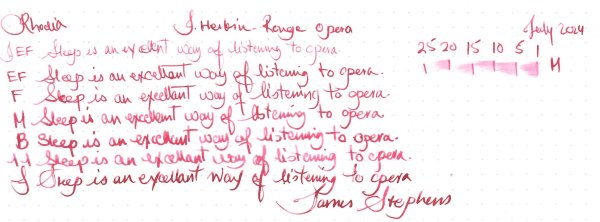 Rhodia J. Herbin - Rouge Opera July 2024
JEF Sleep is an excellent way of listening to opera.
25 20 15 10 5 1
EF Sleep is an excellant way of listening to opera. M
F Sleep is an excellant way of listening to opera.
M Sleep is an excellant way of listening to opera.
B Sleep is an excellant way of listening to opera.
1.1 Sleep is an excellant way of listening to opera.
J Sleep is an excellant way of listening to opera
James Stephens